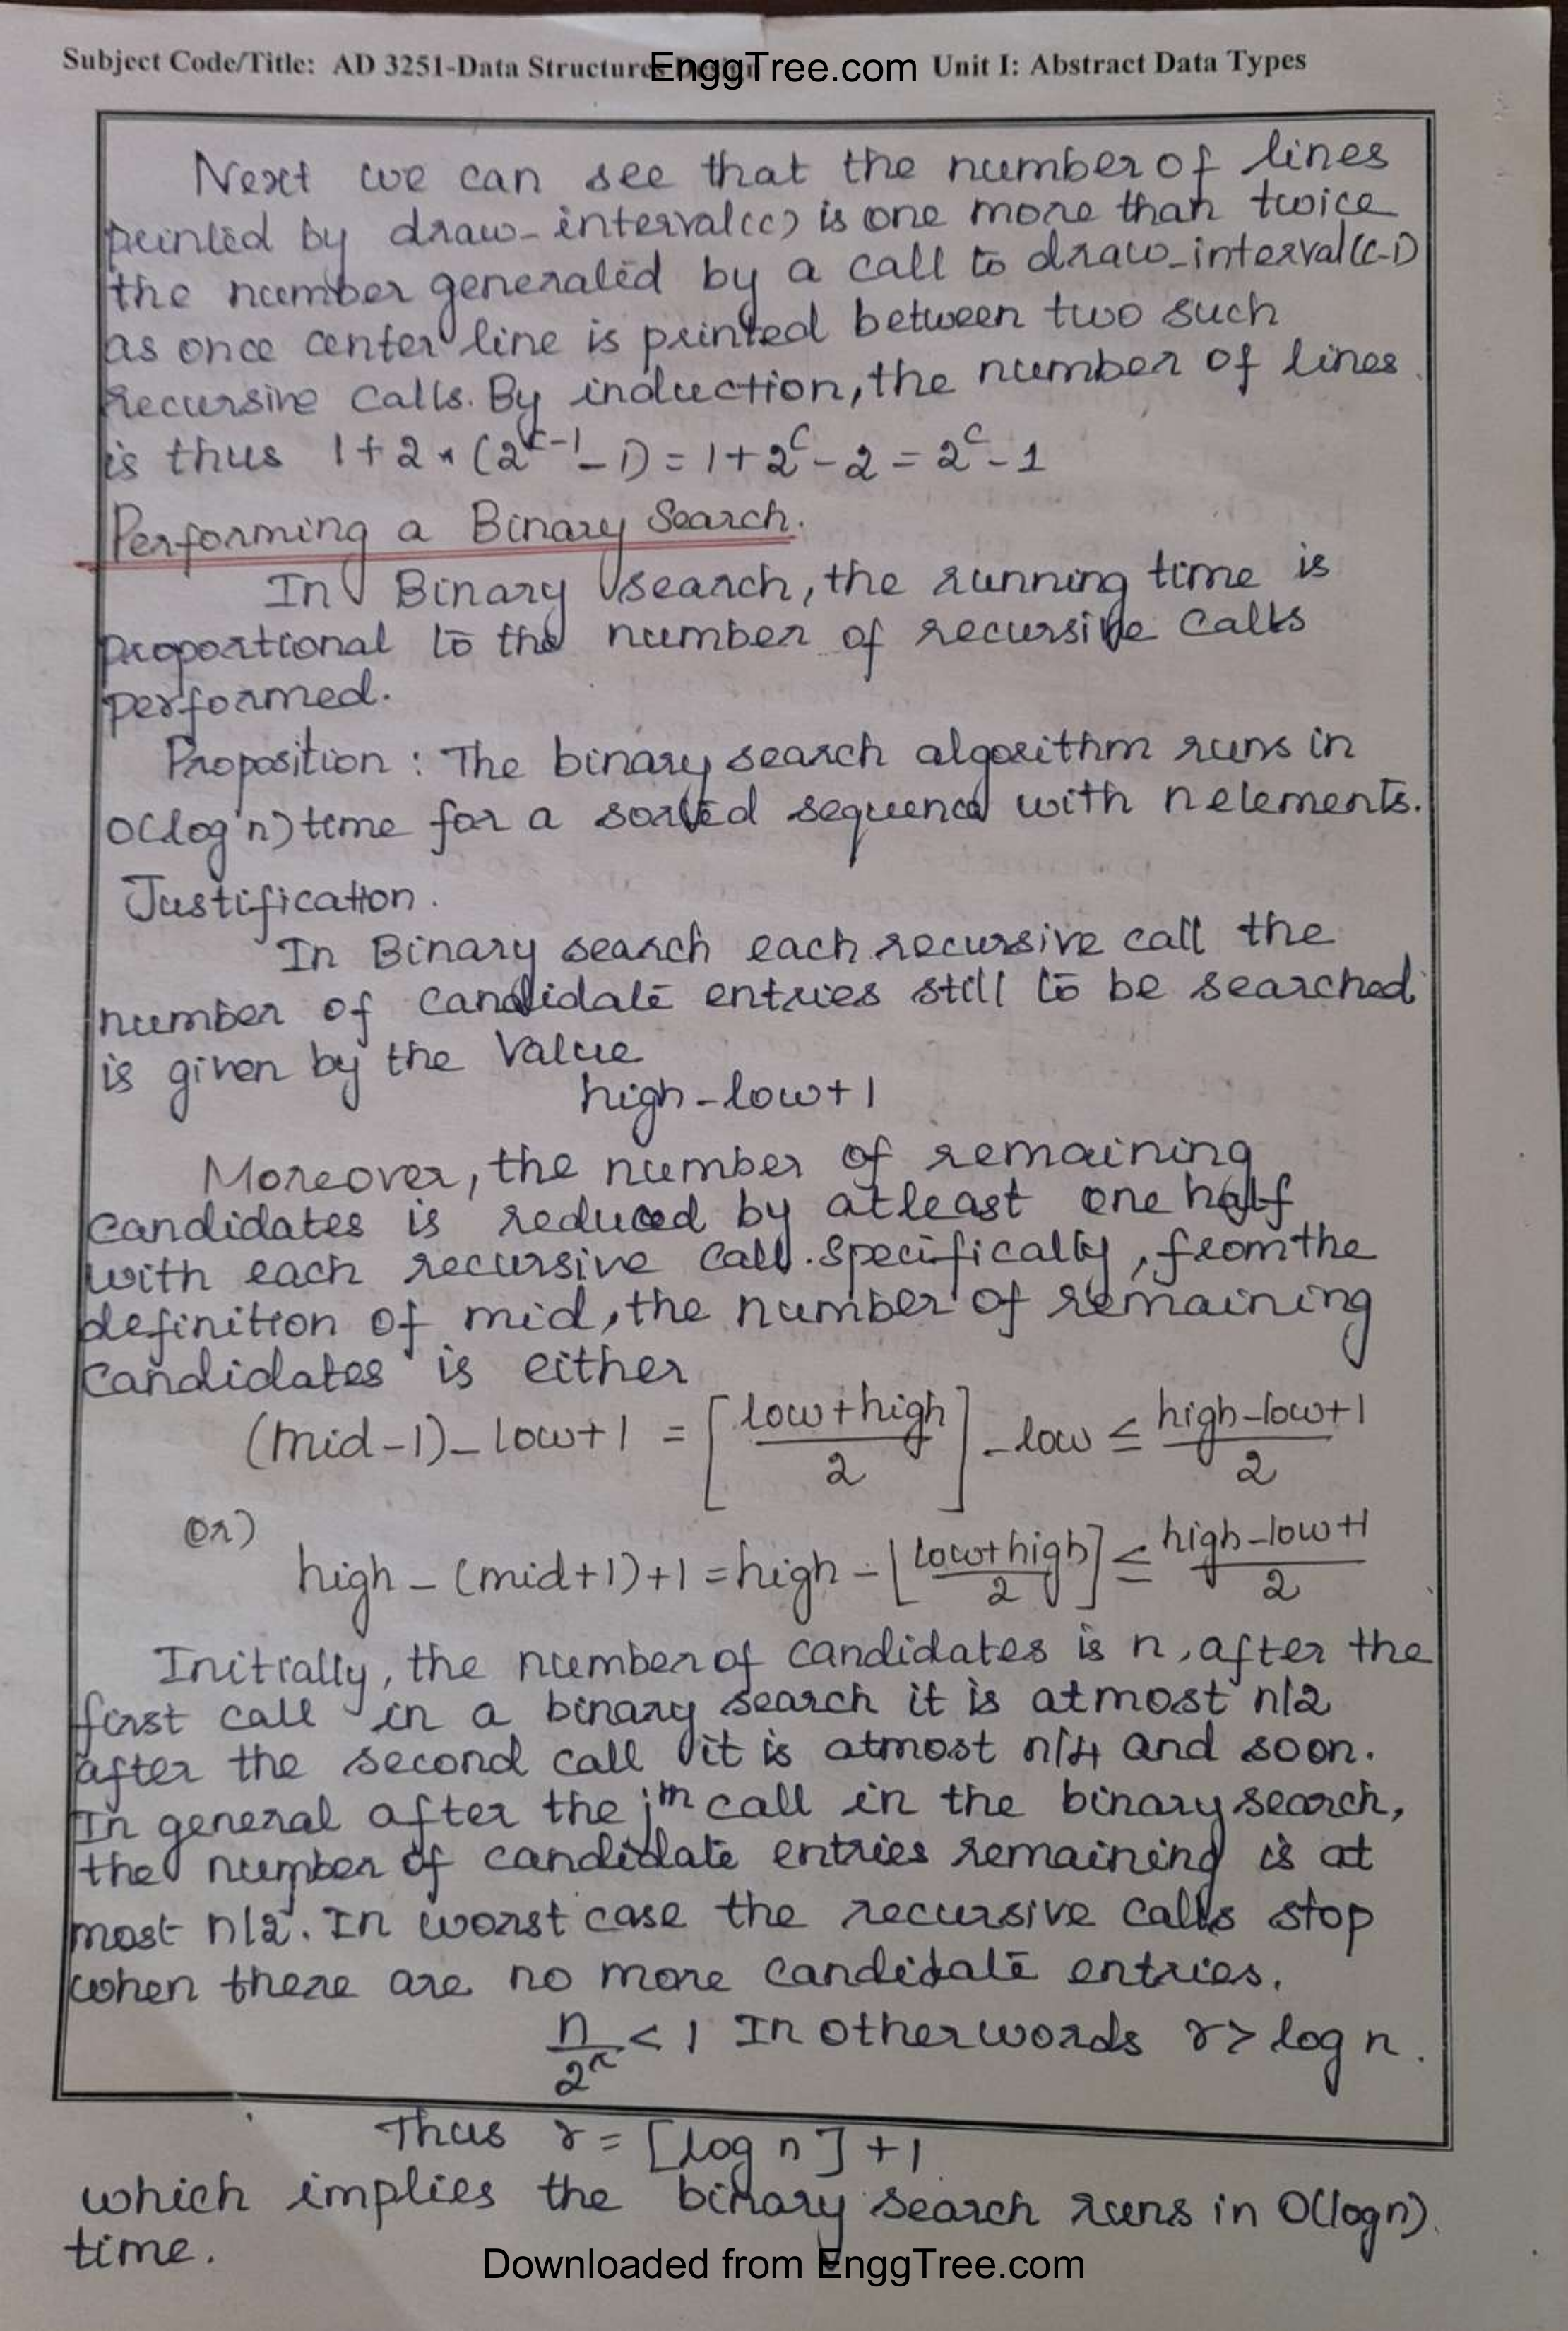 Subject Code/Title: AD 3251-Data Structures Design EnggTree.com Unit I: Abstract Data Types
Next we can see that the number of lines
printed by draw_interval(c) is one more than twice
the number generated by a call to draw_interval(c-1)
as once center line is printed between two such
recursive calls. By induction, the number of lines
is thus 1+2*(2^c-1 - 1) = 1+2^c - 2 = 2^c - 1
Performing a Binary Search.
In Binary search, the running time is
proportional to the number of recursive calls
performed.
Proposition : The binary search algorithm runs in
O(log n) time for a sorted sequence with n elements.
Justification.
In Binary search each recursive call the
number of candidate entries still to be searched
is given by the value
high-low+1
Moreover, the number of remaining
candidates is reduced by atleast one half
with each recursive call. Specifically, from the
definition of mid, the number of remaining
candidates is either
(mid-1)-low+1 = [low+high/2] - low ≤ high-low+1/2
or)
high-(mid+1)+1 = high - [low+high/2] ≤ high-low+1/2
Initially, the number of candidates is n, after the
first call in a binary search it is atmost n/2
after the second call it is atmost n/4 and soon.
In general after the jth call in the binary search,
the number of candidate entries remaining is at
most n/2^j. In worst case the recursive calls stop
when there are no more candidate entries.
n/2^r < 1 In other words r > log n.
Thus r = [log n] + 1
which implies the binary search runs in O(log n)
time.
Downloaded from EnggTree.com